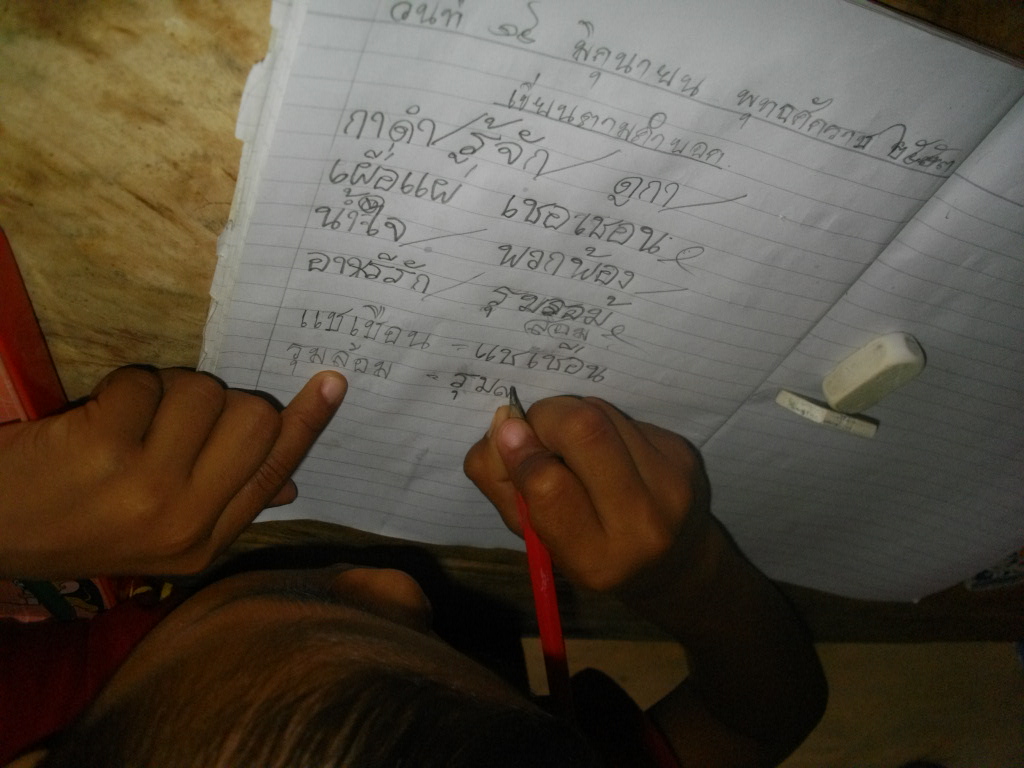 วันที่ ๑๕ มิถุนายน พุทธศักราช
เขียนตามคำบอก
กาดำ / รู้จัก / ดูกา /
เผื่อแผ่ เชอเชอน
น้ำใจ / พวกพ้อง /
อารีรัก / รุม
ล้อม
แชเชือน - แชเชือน
รุมล้อม - รุม